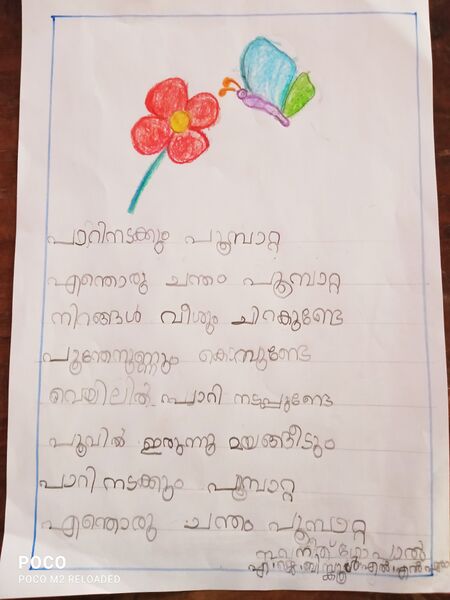 പാറിനടക്കും പൂമ്പാറ്റ
എന്തൊരു ചന്തം പൂമ്പാറ്റ
നിറങ്ങൾ വീശും ചിറകുണ്ടേ
പൂന്തേനുണ്ണും കൊമ്പുണ്ടേ
വെയിലിൽ പാറി നടപ്പുണ്ടേ
പൂവിൽ ഇരുന്നു മയങ്ങീടും
പാറി നടക്കും പൂമ്പാറ്റ
എന്തൊരു ചന്തം പൂമ്പാറ്റ
നവനീത് ഗോപാൽ
POCO
POCO M2 RELOADED